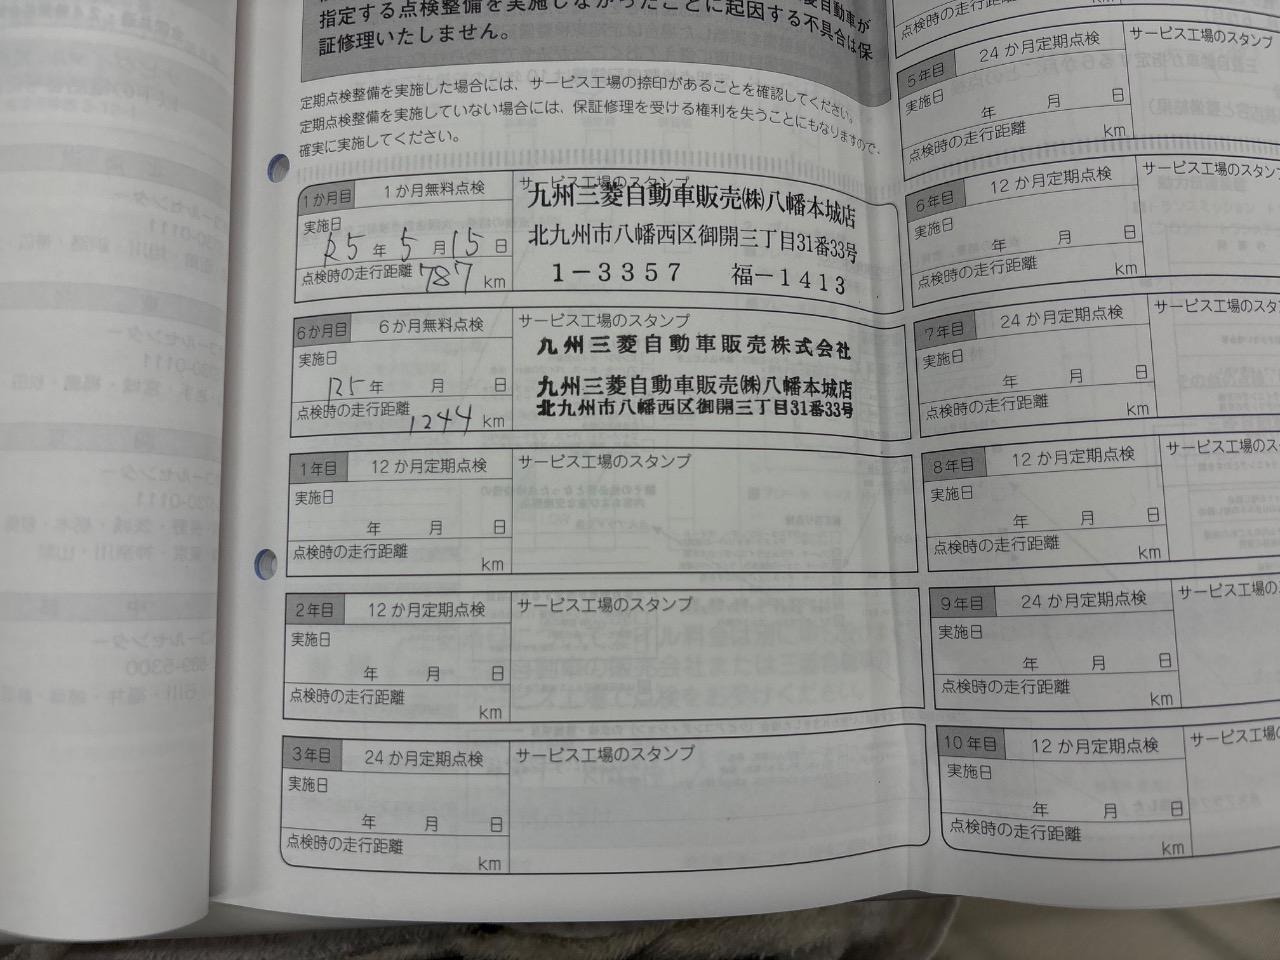 指定する点検整備を実施しなかったことに起因する不具合は保
証修理いたしません。
定期点検整備を実施した場合には、サービス工場の捺印があることを確認してください。
定期点検整備を実施していない場合には、保証修理を受ける権利を失うことにもなりますので、
確実に実施してください。
1か月目 1か月無料点検 サービス工場のスタンプ
実施日
R5年 5月 15日
点検時の走行距離 787 km
九州三菱自動車販売㈱八幡本城店
北九州市八幡西区御開三丁目31番33号
1-3357 福-1413
6か月目 6か月無料点検 サービス工場のスタンプ
実施日
R5年 月 日
点検時の走行距離 1244 km
九州三菱自動車販売株式会社
九州三菱自動車販売㈱八幡本城店
北九州市八幡西区御開三丁目31番33号
1年目 12か月定期点検 サービス工場のスタンプ
実施日
年 月 日
点検時の走行距離 km
2年目 12か月定期点検 サービス工場のスタンプ
実施日
年 月 日
点検時の走行距離 km
3年目 24か月定期点検 サービス工場のスタンプ
実施日
年 月 日
点検時の走行距離 km
点検時の走行距離 km
5年目 24か月定期点検 サービス工場のスタンプ
実施日
年 月 日
点検時の走行距離 km
6年目 12か月定期点検 サービス工場のスタンプ
実施日
年 月 日
点検時の走行距離 km
7年目 24か月定期点検 サービス工場のスタ
実施日
年 月 日
点検時の走行距離 km
8年目 12か月定期点検 サービス工場のス
実施日
年 月 日
点検時の走行距離 km
9年目 24か月定期点検 サービス工場の
実施日
年 月 日
点検時の走行距離 km
10年目 12か月定期点検 サービス工場
実施日
年 月 日
点検時の走行距離 km